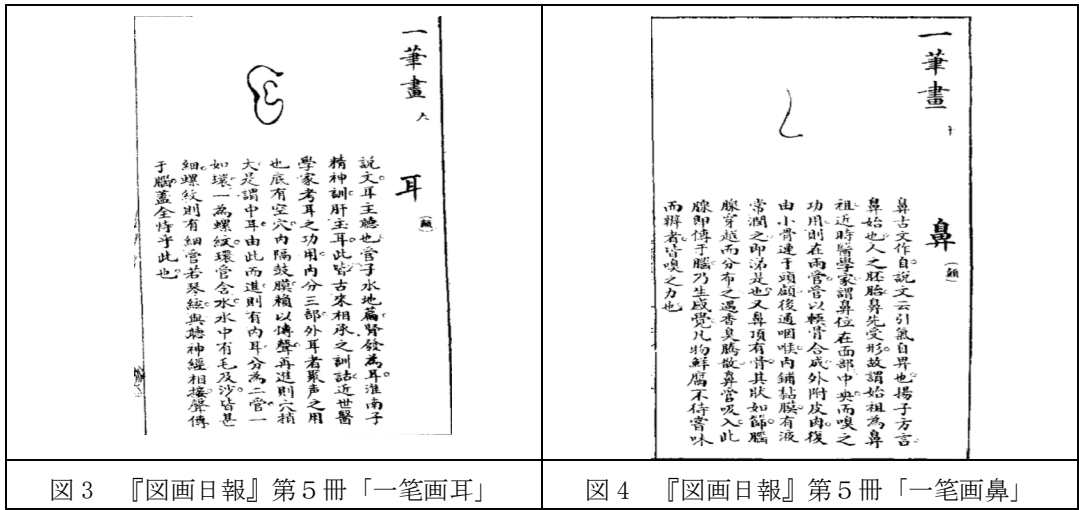 一筆畫 六
耳 (顛)
說文耳主聽也管子水地篇腎發為耳淮南子
精神訓肝主耳此皆古來相承之訓詁近世醫
學家考耳之功用內分三部外耳者聚声之用
也底有空穴內隔鼓膜賴以傳聲再進則穴稍
大是謂中耳由此而進則有內耳分為二管一
如環一為螺紋環管含水水中有毛及沙皆甚
細螺紋則有細管若琴絃與聽神經相接聲傳
于腦蓋全恃乎此也
一筆畫 十
鼻 (顛)
鼻古文作自說文云引氣自畀也揚子方言
鼻始也人之胚胎鼻先受形故謂始祖為鼻
祖近時醫學家謂鼻位在面部中央而嗅之
功用則在兩管管以輭骨合成外附皮肉後
由小骨連于頭顱後通咽喉內鋪黏膜有液
常潤之即涕是也又鼻頂有骨其狀如篩腦
腺穿越而分布之遇香臭騰散鼻管吸入此
腺即傳于腦乃生感覺凡物鮮腐不待嘗味
而辨者皆嗅之力也
図3 『図画日報』第5冊「一笔画耳」
図4 『図画日報』第5冊「一笔画鼻」